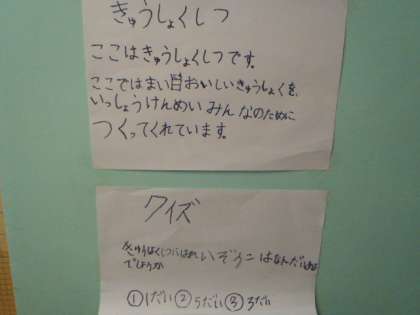 きゅうしょくしつ
ここはきゅうしょくしつです。
ここではまい日おいしいきゅうしょくを、
いっしょうけんめいみんなのために
つくってくれています。
クイズ
きゅうしょくしつにはれいぞうこはなんだいある
でしょうか
①1だい②5だい③3だい